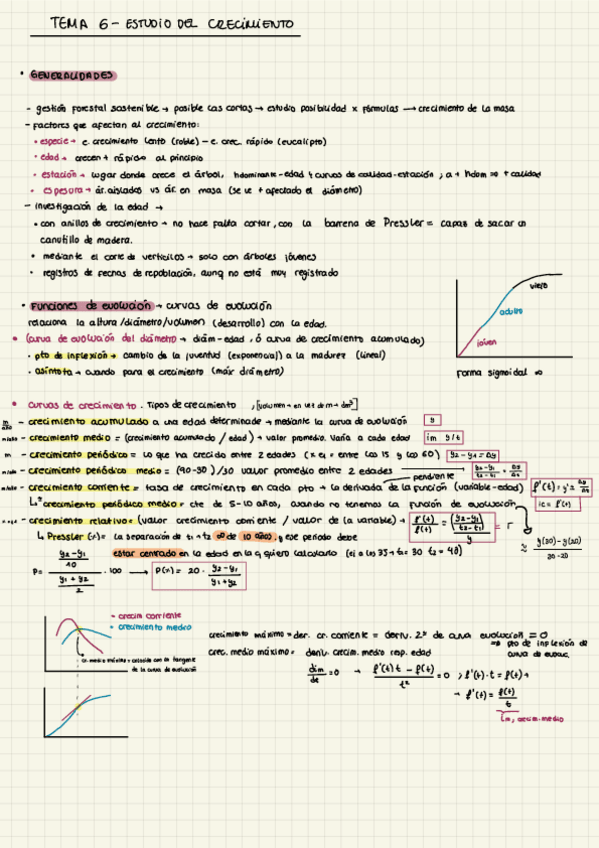 TEMA 6 - ESTUDIO DEL CRECIMIENTO
• GENERALIDADES
- gestión forestal sostenible → posible las cortas → estudio posibilidad x fórmulas → crecimiento de la masa
- Factores que afectan al crecimiento:
• especie → e. crecimiento lento (roble) - e. crec. rápido (eucalipto)
• edad → crecen + rápido al principio
• estación → lugar donde crece el árbol, hdominante-edad y curvas de calidad-estación ; a + hdom ∞ + calidad
• espesura → ár. aislados vs ár. en masa (se ve + afectado el diámetro)
- investigación de la edad →
• con anillos de crecimiento → no hace falta cortar, con la barrena de Pressler = capaz de sacar un
canutillo de madera.
• mediante el corte de verticilos → solo con árboles jóvenes
• registros de fechas de repoblación, aunq no está muy registrado
• Funciones de evolución → curvas de evolución
relaciona la altura/diámetro/volumen (desarrollo) con la edad.
• Curva de evolución del diámetro → diám-edad, ó curva de crecimiento acumulado)
• pto de inflexión → cambio de la juventud (exponencial) a la madurez (lineal)
• asíntota → cuando para el crecimiento (máx diámetro)
viejo
adulto
joven
forma sigmoidal ∞
• curvas de crecimiento. Tipos de crecimiento
- crecimiento acumulado a una edad determinada → mediante la curva de evolución y
- crecimiento medio = (crecimiento acumulado / edad) → valor promedio. Varía a cada edad im y/t
m - crecimiento periódico = lo que ha crecido entre 2 edades (x ej = entre los 15 y los 60) y2 - y1 = Δy
- crecimiento periódico medio = (90-30)/30 valor promedio entre 2 edades y2-y1/t2-t1 =
pendiente
- crecimiento corriente = tasa de crecimiento en cada pto → la derivada de la función (variable-edad) f'(t) = y' =
crecimiento periódico medio = cte de 5-10 años, cuando no tenemos la función de evolución ic = f'(t)
- crecimiento relativo = (valor crecimiento corriente / valor de la variable) → f'(t)/f(t) = (y2-y1/t2-t1)/y = r
≈ y(30)-y(20)/30-20
↳ Pressler (%) = la separación de t1 → t2 ∞ de 10 años, y ese período debe
estar centrado en la edad en la q quiero calcularlo (si a los 35 → t1 = 30 t2 = 40)
P = (y2-y1/10)/(y1+y2/2) · 100 → P(%) = 20 · y2-y1/y1+y2
- crecim corriente
• crecimiento medio
cr. medio máximo → coincide con la tangente
de la curva de evolución
crecimiento máximo = der. cr. corriente = deriv. 2ª de curva evolución = 0
⇒ pto de inflexión de
curva de evoluc.
crec. medio máximo = deriv. crecim. medio resp. edad
dim/dt = 0 → f'(t)t - f(t)/t² = 0 ; f'(t)·t = f(t) →
→ f'(t) = f(t)/t
im, crecim. medio